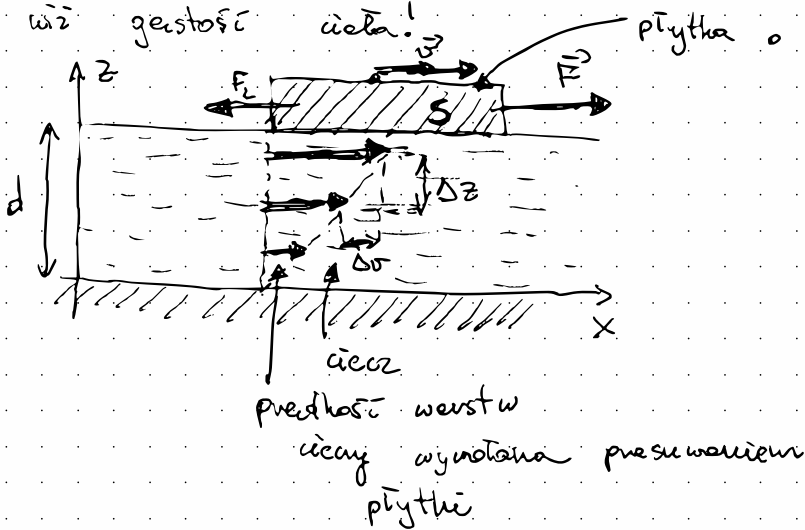 niż gęstość ciała!
v
płytka
z
F_L
F
S
d
Δz
Δv
x
ciecz
prędkość warstw
cieczy wywołana przesuwaniem
płytki